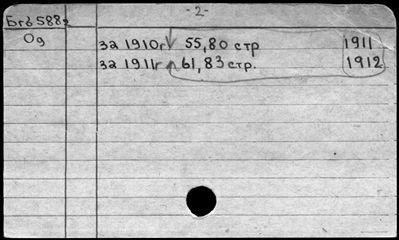 -2-
Бгд 5882
Од
за 1910г 55,80 стр 1911
за 1911г 61,83 стр. 1912